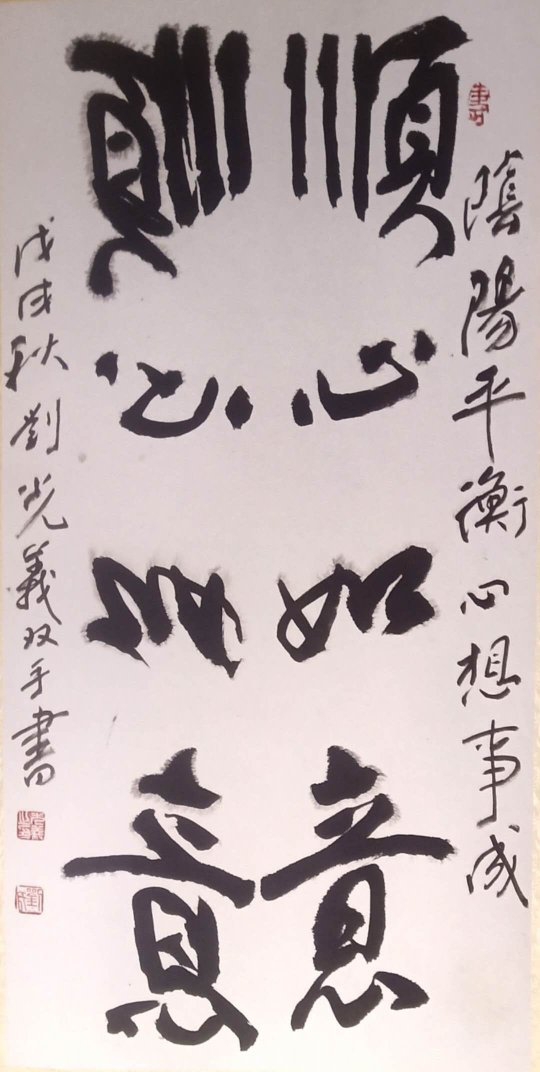 陰陽平衡心想事成
順心如意
順心如意
戊戌秋劉光義双手書